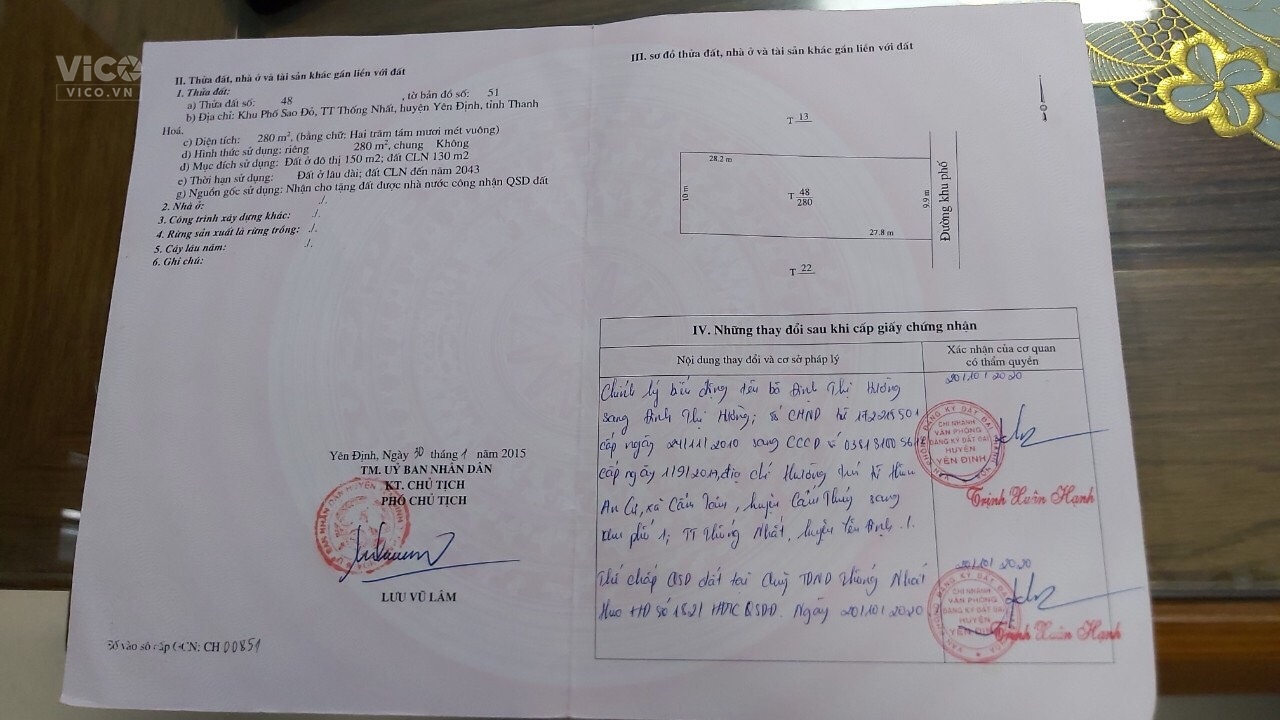 VICO
VICO.VN
II. Thửa đất, nhà ở và tài sản khác gắn liền với đất
1. Thửa đất:
a) Thửa đất số: 48 , tờ bản đồ số: 51
b) Địa chỉ: Khu Phố Sao Đỏ, TT Thống Nhất, huyện Yên Định, tỉnh Thanh
Hoá.
c) Diện tích: 280 m², (bằng chữ: Hai trăm tám mươi mét vuông)
d) Hình thức sử dụng: riêng 280 m², chung Không
đ) Mục đích sử dụng: Đất ở đô thị 150 m2; đất CLN 130 m2
e) Thời hạn sử dụng: Đất ở lâu dài; đất CLN đến năm 2043
g) Nguồn gốc sử dụng: Nhận cho tặng đất được nhà nước công nhận QSD đất
2. Nhà ở: ./.
3. Công trình xây dựng khác: ./.
4. Rừng sản xuất là rừng trồng: ./.
5. Cây lâu năm: ./.
6. Ghi chú:
Yên Định, Ngày 30 tháng 1 năm 2015
TM. UỶ BAN NHÂN DÂN
KT. CHỦ TỊCH
PHÓ CHỦ TỊCH
LƯU VŨ LÂM
Số vào sổ cấp GCN: CH 00851
III. sơ đồ thửa đất, nhà ở và tài sản khác gắn liền với đất
T 13
28.2 m
10 m
T 48
280
9.9 m
Đường khu phố
27.8 m
T 22
IV. Những thay đổi sau khi cấp giấy chứng nhận
Nội dung thay đổi và cơ sở pháp lý
Xác nhận của cơ quan
có thẩm quyền
Chỉnh lý biến động tên bà Đinh Thị Hương
sang Đinh Thị Hường; số CMND từ 172215501
cấp ngày 24/11/2010 sang CCCD số
cấp ngày địa chỉ thường trú từ thôn
An Cư, xã Cẩm Tâm, huyện Cẩm Thủy sang
khu phố 1; TT Thống Nhất, huyện Yên Định ./.
20/10/2020
VĂN PHÒNG ĐĂNG KÝ ĐẤT ĐAI
CHI NHÁNH
VĂN PHÒNG
ĐĂNG KÝ ĐẤT ĐAI
HUYỆN
YÊN ĐỊNH
Trịnh Xuân Hạnh
Thế chấp QSD đất tại Quỹ TDND Thống Nhất
theo HĐ số 182/ HĐTC QSDĐ. Ngày 20/10/2020
20/10/2020
CHI NHÁNH
VĂN PHÒNG
ĐĂNG KÝ ĐẤT ĐAI
HUYỆN
YÊN ĐỊNH
Trịnh Xuân Hạnh